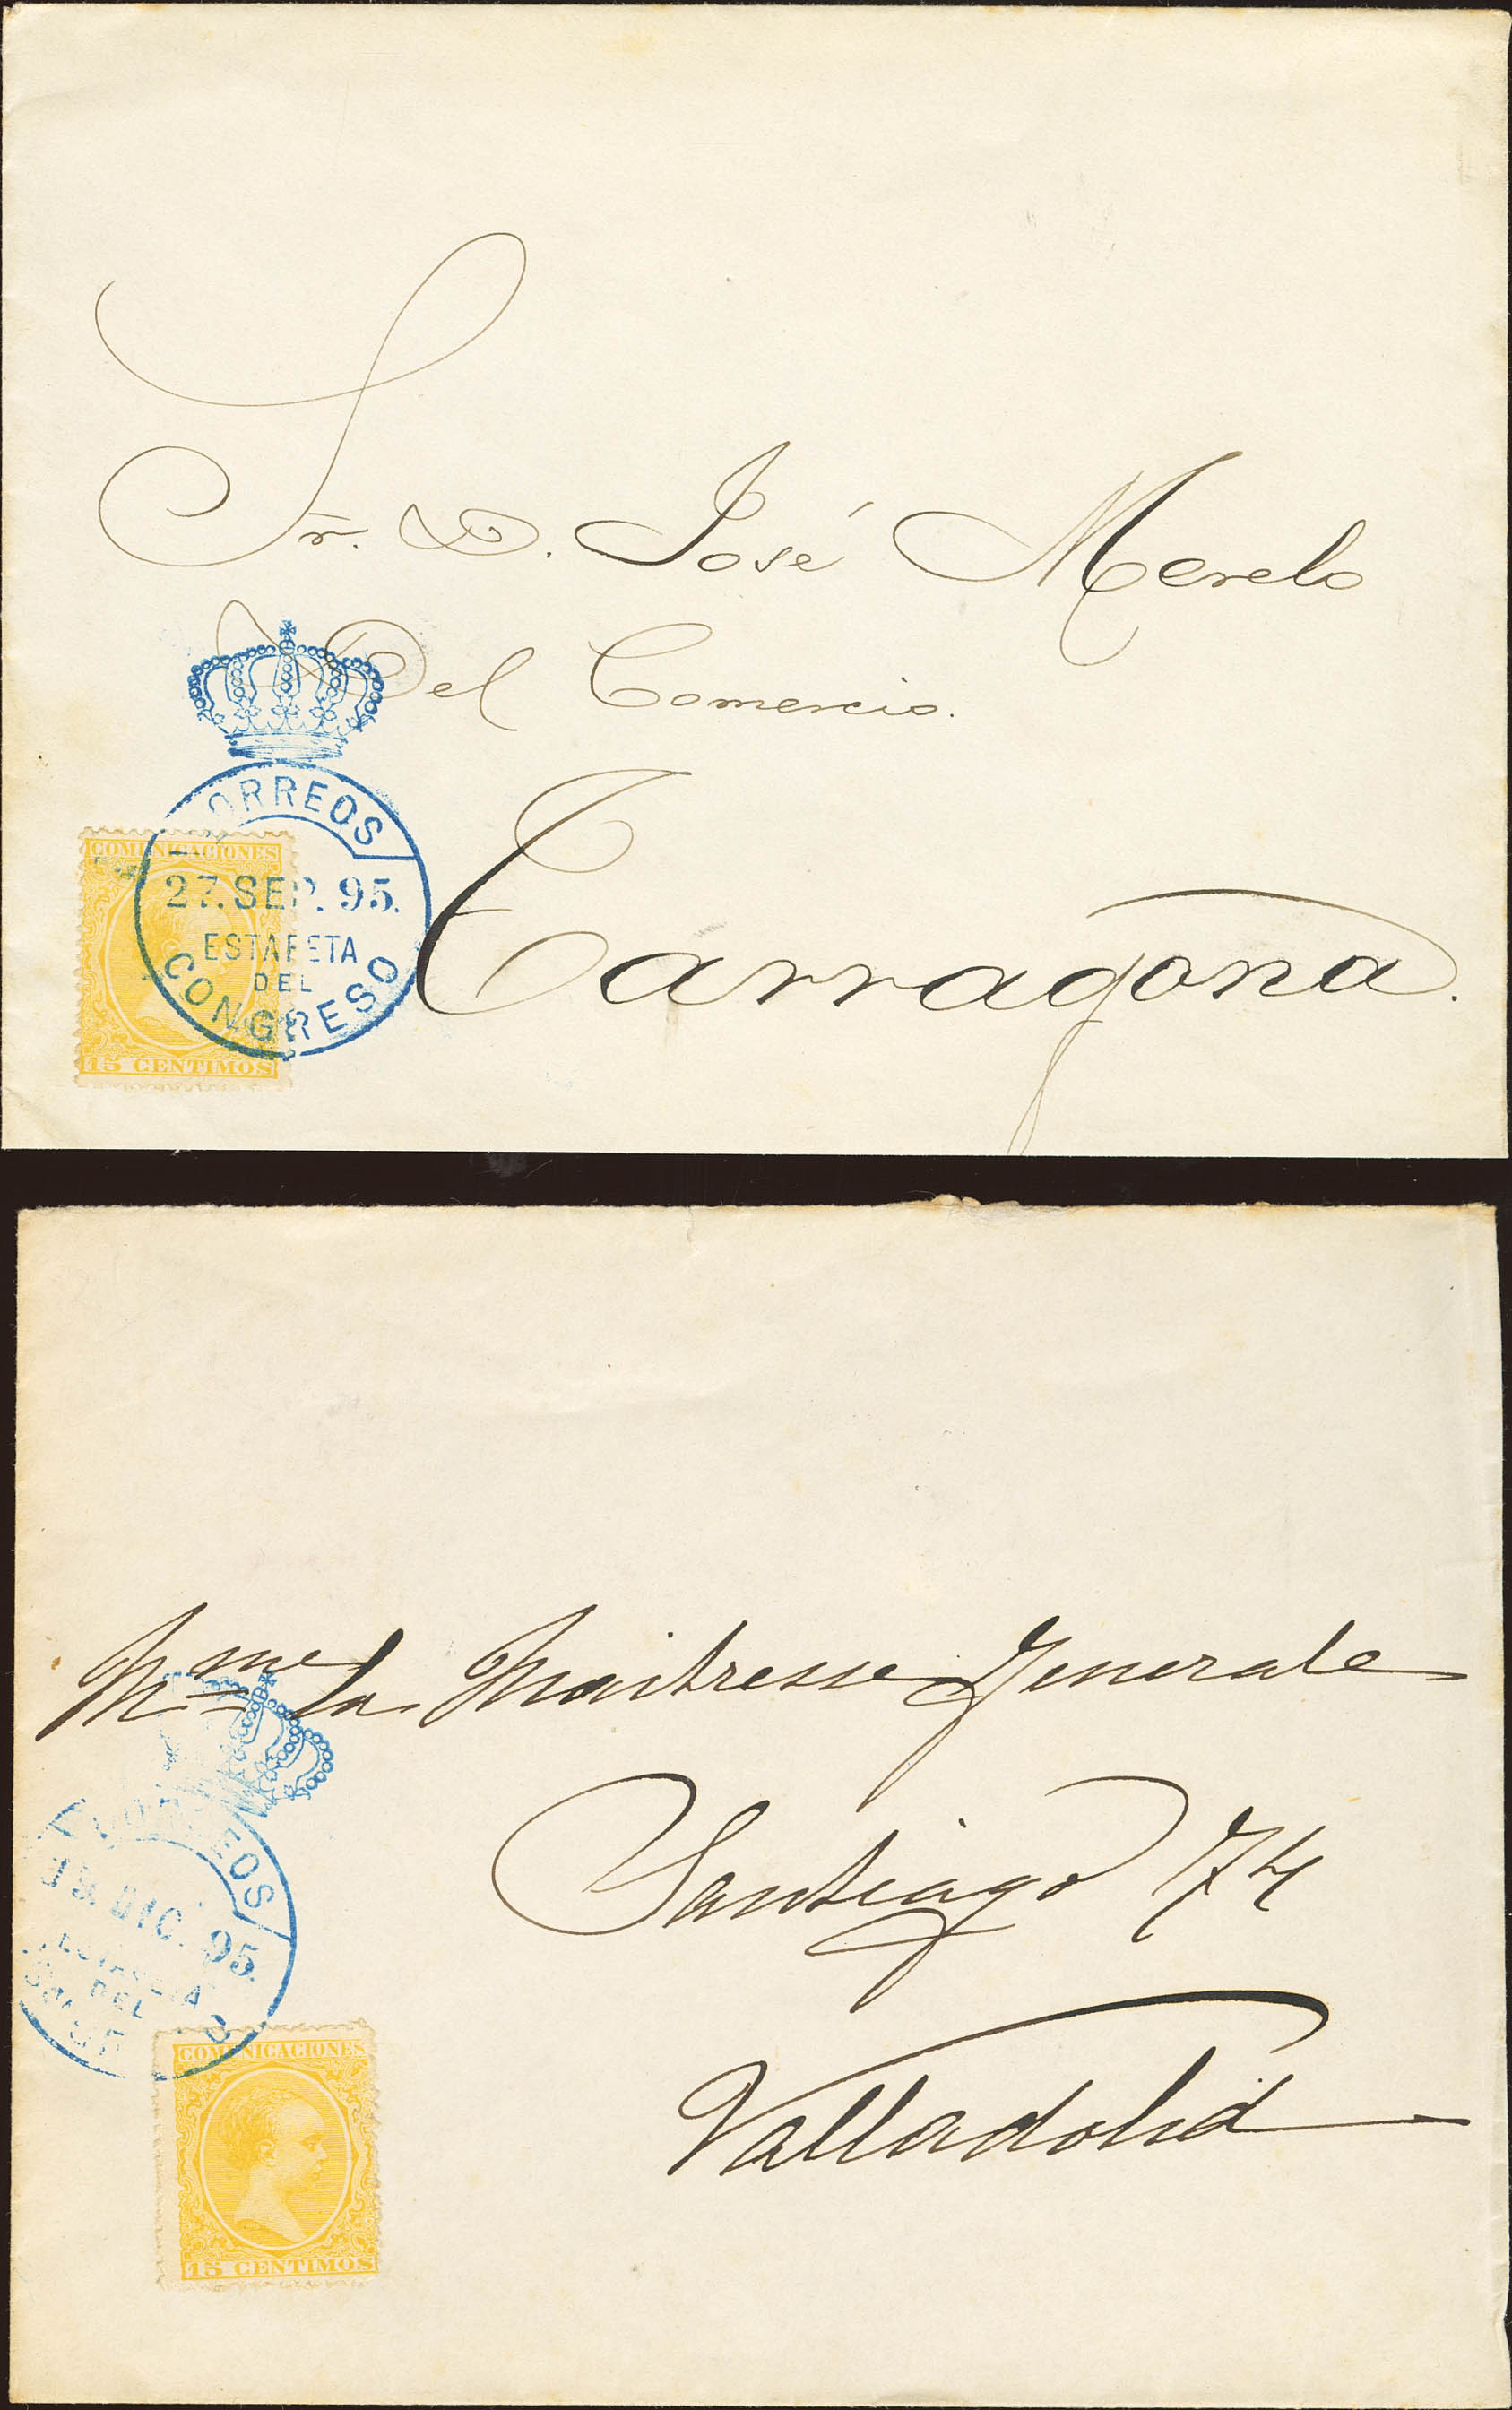 Sr. D. José Merelo
Del Comercio.
CORREOS
COMUNICACIONES
27. SEP. 95.
ESTAFETA
DEL
CONGRESO
15 CENTIMOS
Tarragona.
Mme la Maitresse Generale
Santiago 74
CORREOS
DIC. 95.
ESTAFETA
DEL
Valladolid
COMUNICACIONES
15 CENTIMOS